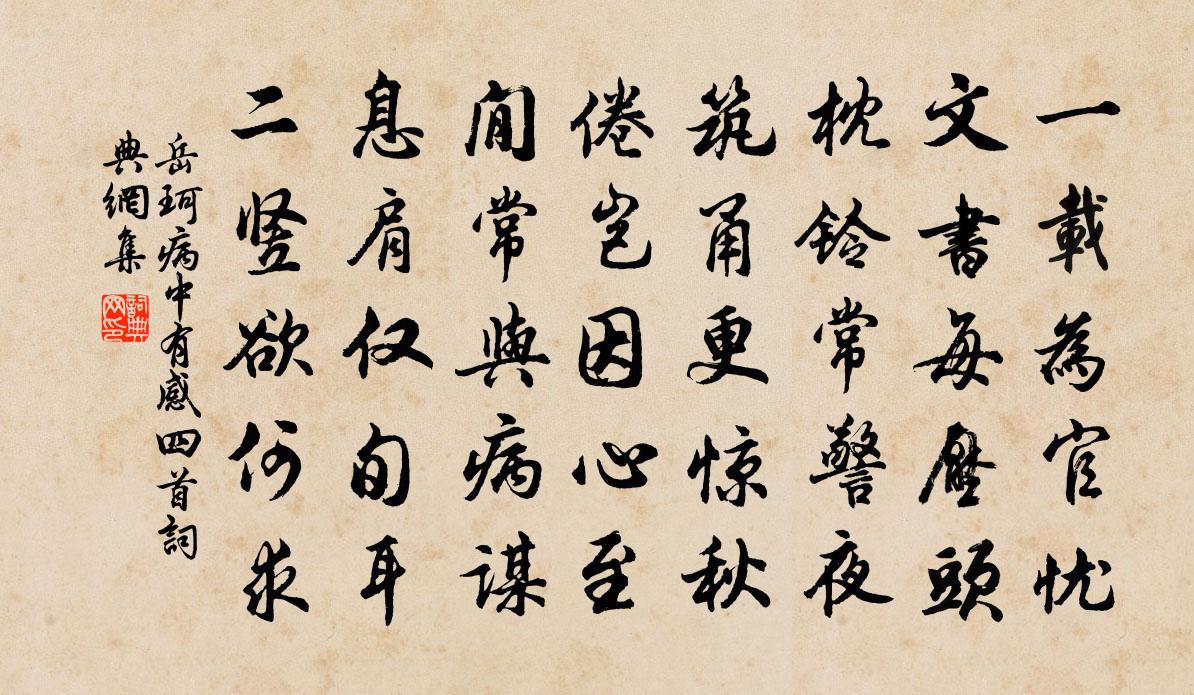 一載為官忧
文書每壓頭
枕鈴常警夜
筑甬更惊秋
倦岂因心至
閒常與病謀
息肩仅旬耳
二竖欲何求
岳珂病中有感四首詞
典網集
詞典网印